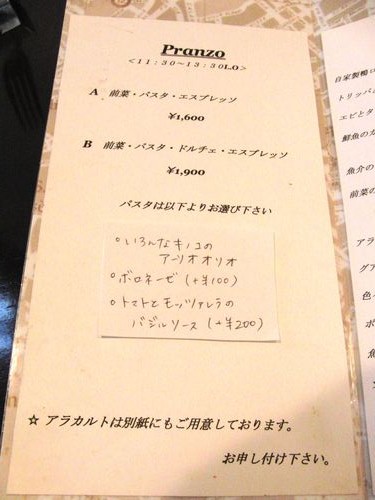 Pranzo
<11:30～13:30L.O>
A 前菜・パスタ・エスプレッソ
¥1,600
B 前菜・パスタ・ドルチェ・エスプレッソ
¥1,900
パスタは以下よりお選び下さい
○いろんなキノコの
アーリオオリオ
○ボロネーゼ(+¥100)
○トマトとモッツァレラの
バジルソース(+¥200)
☆ アラカルトは別紙にもご用意しております。
お申し付け下さい。
自家製鴨の
トリッパ
エビとタ
鮮魚のカ
魚介の
前菜の
アラ
グア
色
ポ
魚